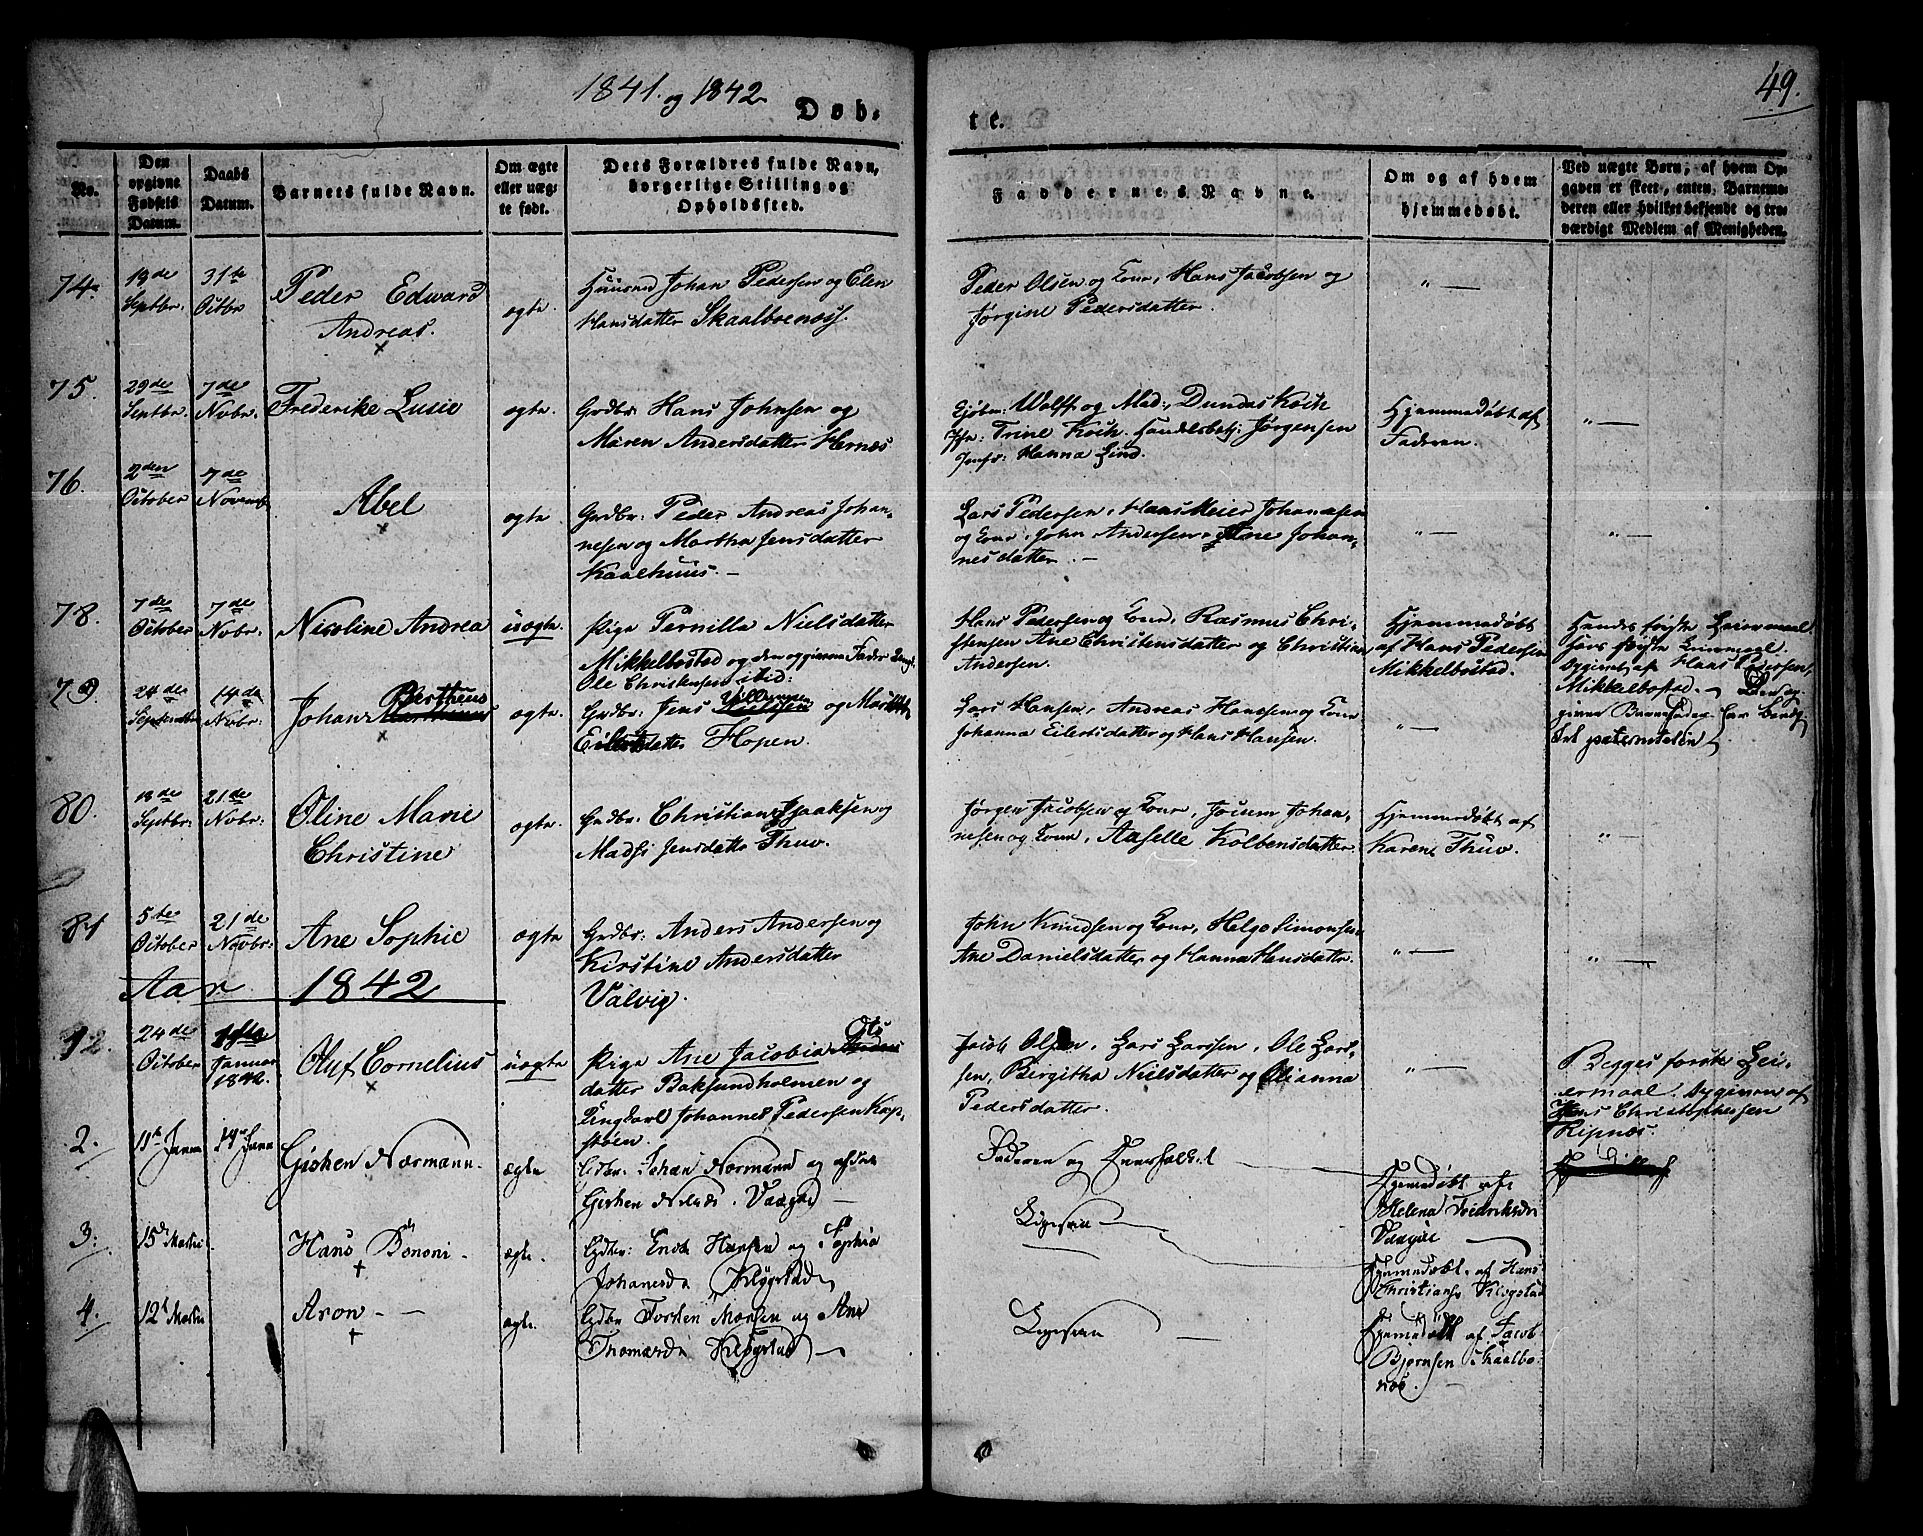 1841. og 1842
49.
Døb-
te.
No.
Den opgivne Fødsels Datum.
Daabs Datum.
Barnets fulde Navn.
Om ægte eller uægte født.
Dets Forældres fulde Navn, borgerlige Stilling og Opholdssted.
Faddernes Navne.
Om og af hvem hjemmedøbt.
Ved uægte Børn, af hvem Opgaven er skeet, enten Barnemoderen eller hvilket bekjendt og troværdigt Medlem af Menigheden.
74.
19de Septbr.
31te Octbr
Peder Edward
Andreas.
ægte.
Huusmd Johan Pedersen og Elen
Hansdatter Skaalboenæss.
Peder Olsen og Kone, Hans Jacobsen og
Jørgine Pedersdatter.
" —
75.
29de Septbr.
7de Nvbr.
Frederike Lusie
ægte.
Grdbr: Hans Johnsen og
Maren Andersdatter Hernæs
Wolff og Mad:, Dundas Koch
Trine Koch. Handelsbetj: Jørgensen
Jomfr: Hanna Lind.
Hjemmedøbt af
Faderen.
" —
76.
2den October
7de Novemb
Abel
ægte.
Grdbr: Peder Andreas Johan-
nesen og Martha Jensdatter
Kaalhuus. —
Lars Pedersen, Hans Meier Johannesen
og Kone, John Andersen, Ane Johan-
nesdatter. —
" —
" —
78.
7de October
7de Nvbr.
Nicoline Andrea
uægte.
Pige Pernilla Nielsdatter
Mikkelbostad og den opgivne Fader
Ole Christensen ibid:
Hans Pedersen og Kone, Rasmus Chri-
stensen Ane Christensdatter og Christian
Andersen.
Hjemmedøbt
af Hans Pedersen
Mikkelbostad.
Hendes første Leiermaal
Hans første Leiermaal
opgivet af Hans Pedersen,
Mikkelbostad. —
79
24de Septembr
14de Nvbr.
Johan Bertheus
ægte.
Grdbr: Jens og
Eilertsdatter Hopen.
Lars Hansen, Andreas Hansen og Kone
Johanna Eilersdatter og Hans Hansen.
" —
80.
18de Septbr.
21de Nvbr:
Oline Marie
Christine
ægte.
Grdbr. Christian Isaaksen og
Madsi Jensdatter Thuv.
Jørgen Jacobsen og Kone, Jocum Johan-
nesen og Kone, Aaselle Kolbensdatter.
Hjemmedøbt af
Karen Thuv.
" —
81
5te October
21de Nvbr:
Ane Sophie
ægte
Grdbr: Anders Andersen og
Kirstine Andersdatter
Valvig.
John Knudsen og Kone, Helge Simonsen
Ane Danielsdatter og Hanna Hansdatter.
" —
" —
Aar 1842
24de October
Januar 1842.
Oluf Cornelius
uægte
Pige Ane Jacobia Ols
datter Baksundholmen og
Ungkarl Johannes Pedersen Kap-
støen.
Jacob Olsen, Lars Larssen, Ole Lars-
sen, Bergitha Nielsdatter og Olianna
Pedersdatter.
" —
Begges første Lei-
ermaal. Opgiven af
Hans Christophersen
Ripnæs.
2.
11te Janu
19de Janu
Gishen Normann.
ægte
Grdbr. Johan Normand og
Gishen Vaagø —
Faderen og
Hjemmedøbt af
Helena Fredriksdr
Vaagøe —
3.
15de Martii
Hans Bononi -
ægte.
Grdbr: Hansen og Sophia
Johanesdr Kløgstad
Hjemmedøbt. af Hans
Christianse Kløgstad
4.
12te Martii
Aron - —
ægte.
Grdbr Torsten Monsen og Ane
Thomasdr Kløgstad —
Hjemmedøbt af Jacob
Bjørnsen Skaalbo-
næs. —